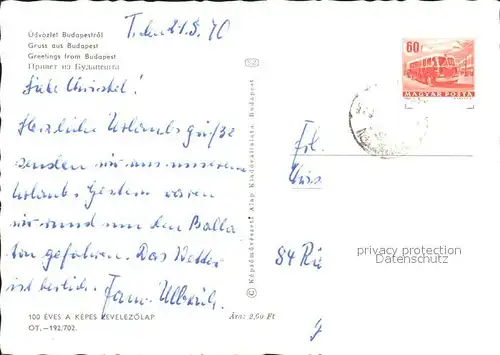 Üdvözlet Budapestről
Gruss aus Budapest
Greetings from Budapest
Привет из Будапешта
60f
MAGYAR POSTA
Liebe Christel!
Herzliche Urlaubsgrüße
senden wir aus unserem
Urlaub. Gestern waren
wir rund um den Balla
ton gefahren. Das Wetter
ist herrlich. Fam. Ullrich
100 ÉVES A KÉPES LEVELEZŐLAP
OT.—192/702.
Ára: 2,60 Ft
© Képzőművészeti Alap Kiadóvállalata, Budapest
Frl.
54
privacy protection
Datenschutz